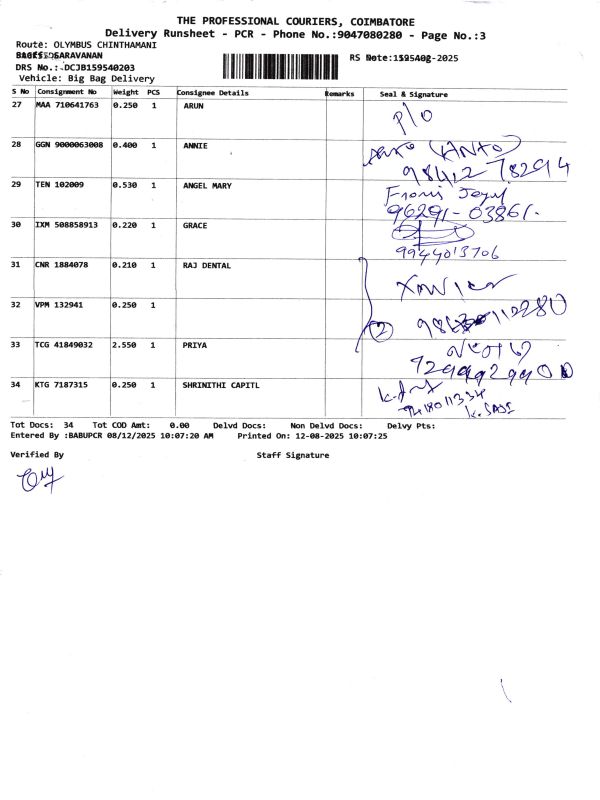 THE PROFESSIONAL COURIERS, COIMBATORE
Delivery Runsheet - PCR - Phone No.:9047080280 - Page No.:3
Route: OLYMBUS CHINTHAMANI
SARAVANAN
RS -2025
DRS No.: DCJB159540203
Vehicle: Big Bag Delivery
S No Consignment No Weight PCS Consignee Details Remarks Seal & Signature
27 MAA 710641763 0.250 1 ARUN P/O
28 GGN 9000063008 0.400 1 ANNIE (ANTO)
98412 78294
29 TEN 102009 0.530 1 ANGEL MARY
96291-03861.
30 IXM 508858913 0.220 1 GRACE
9944013706
31 CNR 1884078 0.210 1 RAJ DENTAL
32 VPM 132941 0.250 1 2
33 TCG 41849032 2.550 1 PRIYA
34 KTG 7187315 0.250 1 SHRINITHI CAPITL
Tot Docs: 34 Tot COD Amt: 0.00 Delvd Docs: Non Delvd Docs: Delvy Pts:
Entered By :BABUPCR 08/12/2025 10:07:20 AM Printed On: 12-08-2025 10:07:25
Verified By Staff Signature